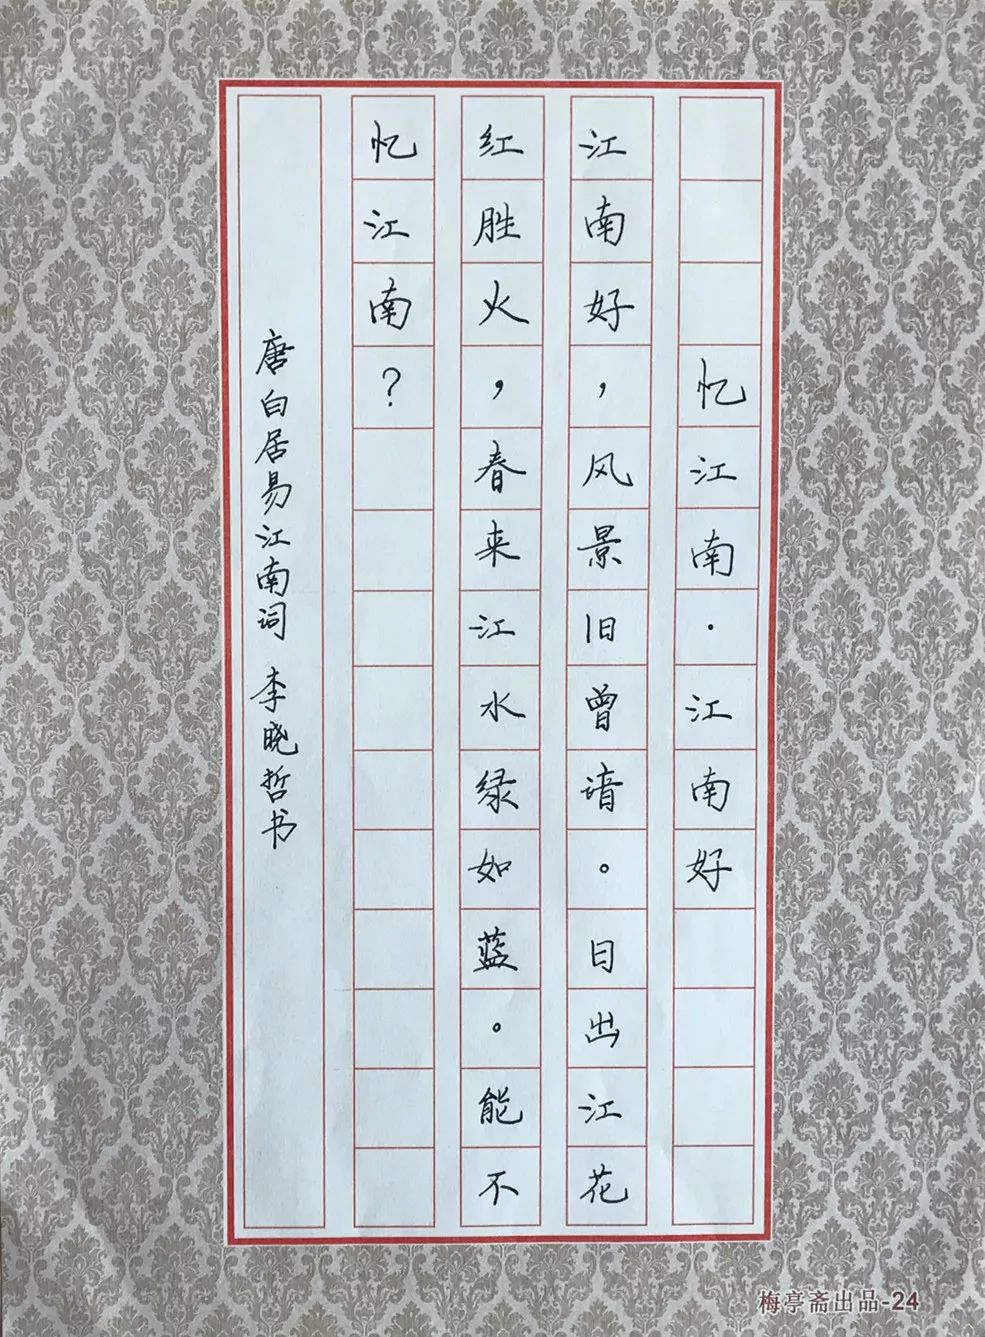 忆江南·江南好
江南好，风景旧曾谙。日出江花
红胜火，春来江水绿如蓝。能不
忆江南？
唐白居易江南词 李晓哲书
梅亭斋出品-24